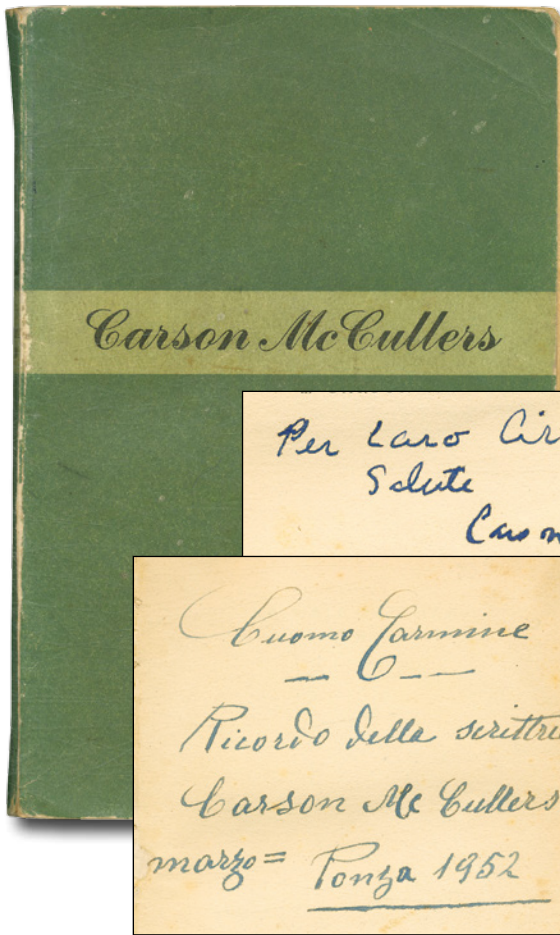 Carson McCullers
Per Caro Cir
Salute
Carson
Cuomo Carmine
Ricordo della scrittri
Carson Mc Cullers
marzo = Ponza 1952